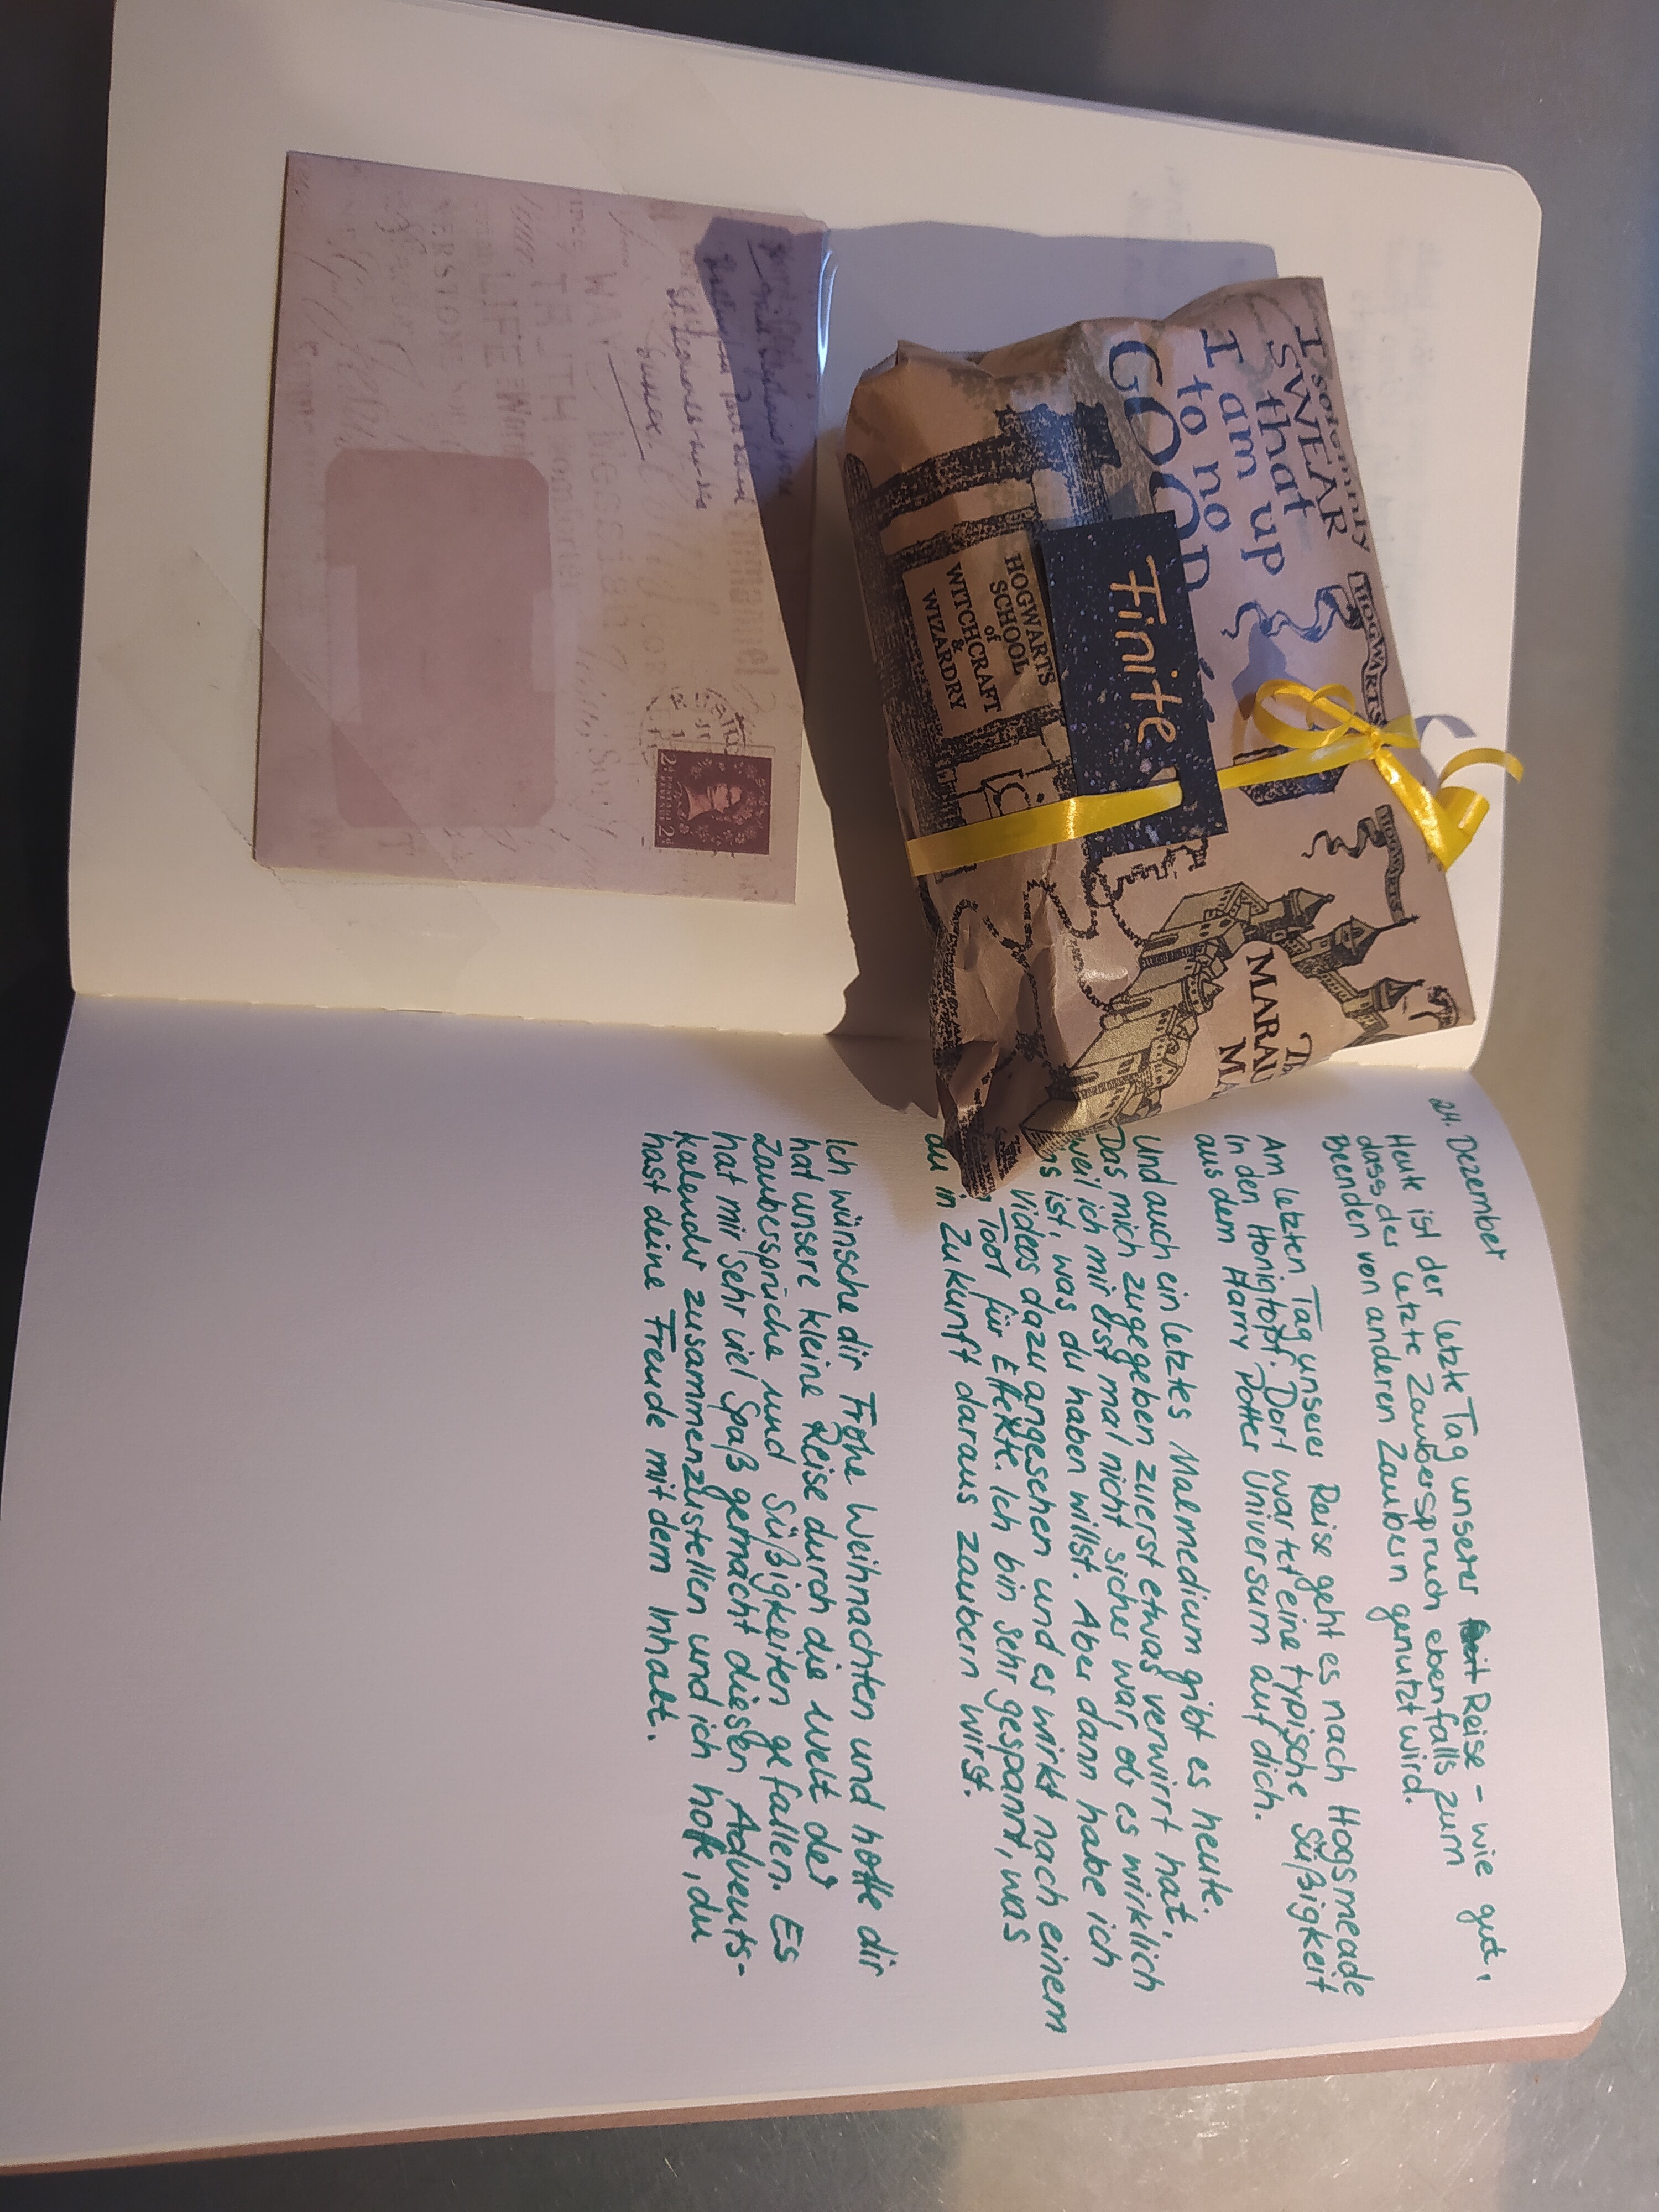 I solemnly
SWEAR
that
I am up
to no
GOOD
HOGWARTS
HOGWARTS
Finite
HOGWARTS
SCHOOL
of
WITCHCRAFT
&
WIZARDRY
MARAU
LIFE
St. Leonards-on-Sea
Sussex.
2d
2d
24. Dezember
Heute ist der letzte Tag unserer Reise – wie gut,
dass der letzte Zauberspruch ebenfalls zum
Beenden von anderen Zaubern genutzt wird.
Am letzten Tag unserer Reise geht es nach Hogsmeade
in den Honigtopf. Dort wartet eine typische Süßigkeit
aus dem Harry Potter Universum auf dich.
Und auch ein letztes Malmedium gibt es heute.
Das mich zugegeben zuerst etwas verwirrt hat,
weil ich mir erst mal nicht sicher war ob es wirklich
ist, was du haben willst. Aber dann habe ich
Videos dazu angesehen und es wirkt nach einem
Topf für Effekte. Ich bin sehr gespannt, was
du in Zukunft daraus zaubern wirst.
Ich wünsche dir Frohe Weihnachten und hoffe dir
hat unsere kleine Reise durch die Welt der
Zaubersprüche und Süßigkeiten gefallen. Es
hat mir sehr viel Spaß gemacht diesen Advents-
kalender zusammenzustellen und ich hoffe, du
hast deine Freude mit dem Inhalt.